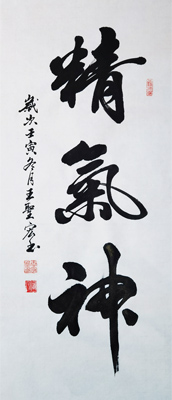 精氣神
歲次壬寅冬月王聖宏書